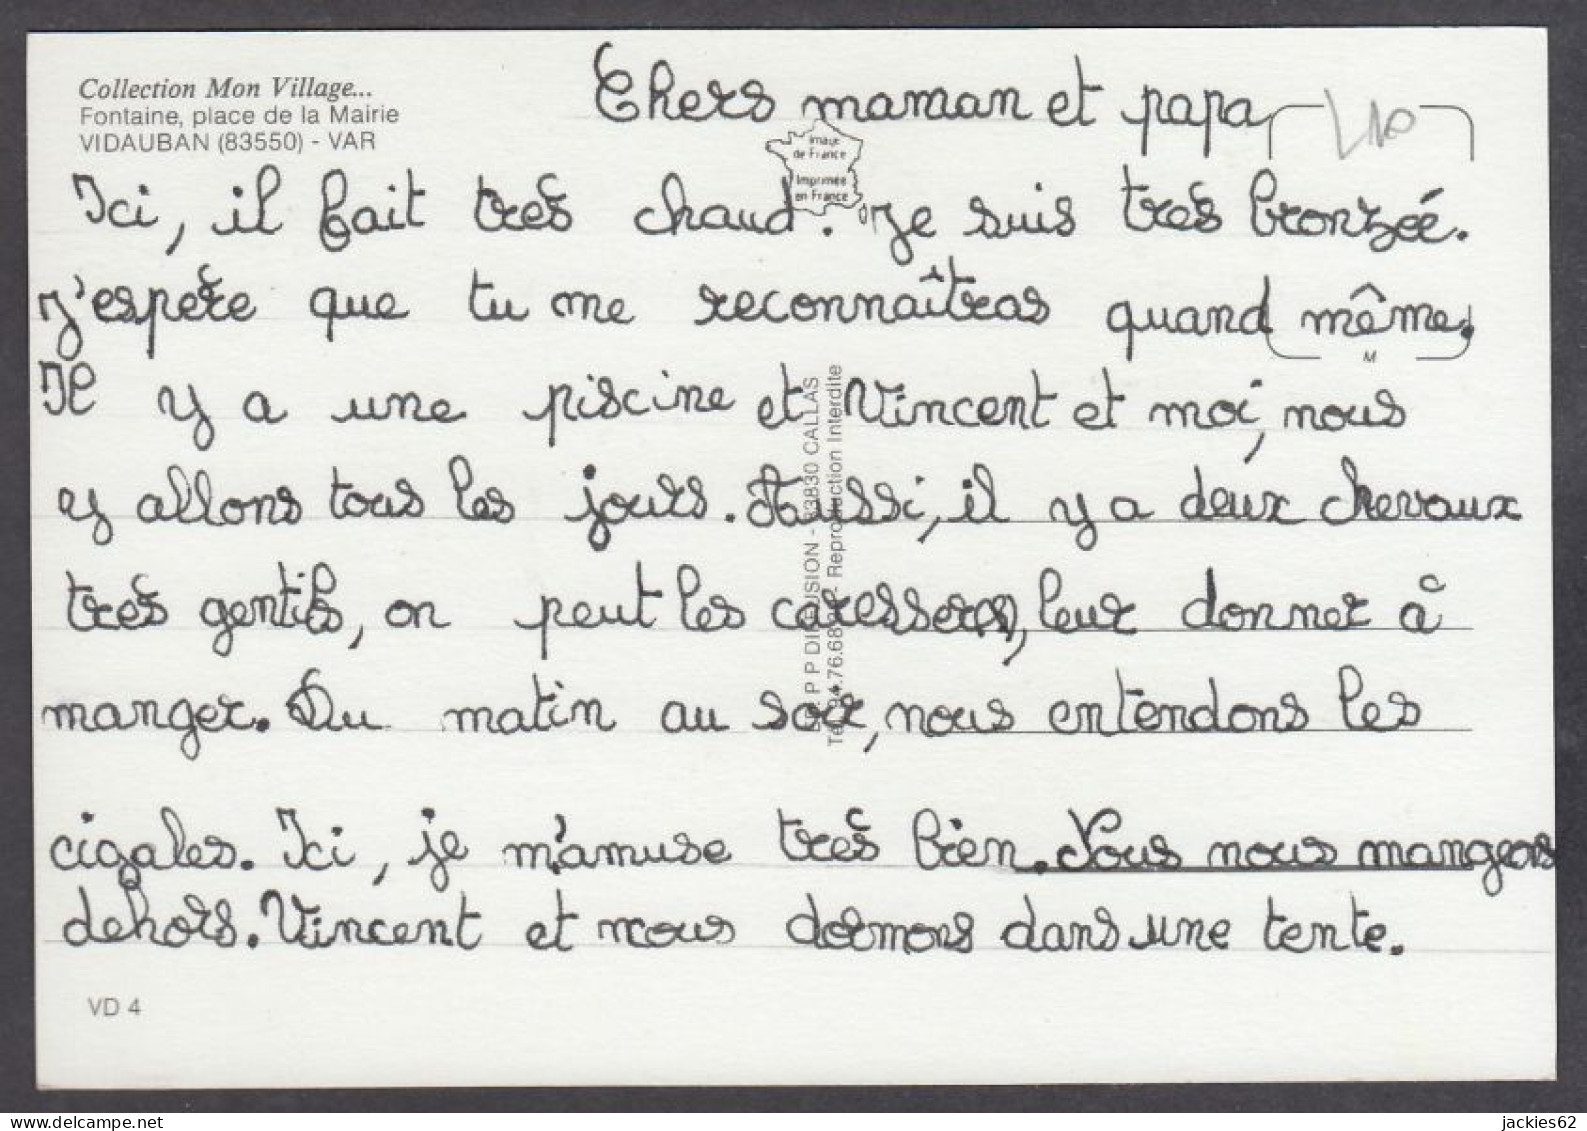 Collection Mon Village...
Fontaine, place de la Mairie
VIDAUBAN (83550) - VAR
Chers maman et papa
Image
de France
Imprimée
en France
Ici, il fait très chaud. Je suis très bronzée.
J'espère que tu me reconnaîtras quand même.
M
Il y a une piscine et Vincent et moi, nous
y allons tous les jours. Aussi, il y a deux chevaux
très gentils, on peut les caresser, leur donner à
manger. Du matin au soir, nous entendons les
cigales. Ici, je m'amuse très bien. Nous nous mangeons
dehors. Vincent et nous dormons dans une tente.
P P DIFFUSION - 83830 CALLAS
Reproduction Interdite
VD 4
www.delcampe.net
jackies62